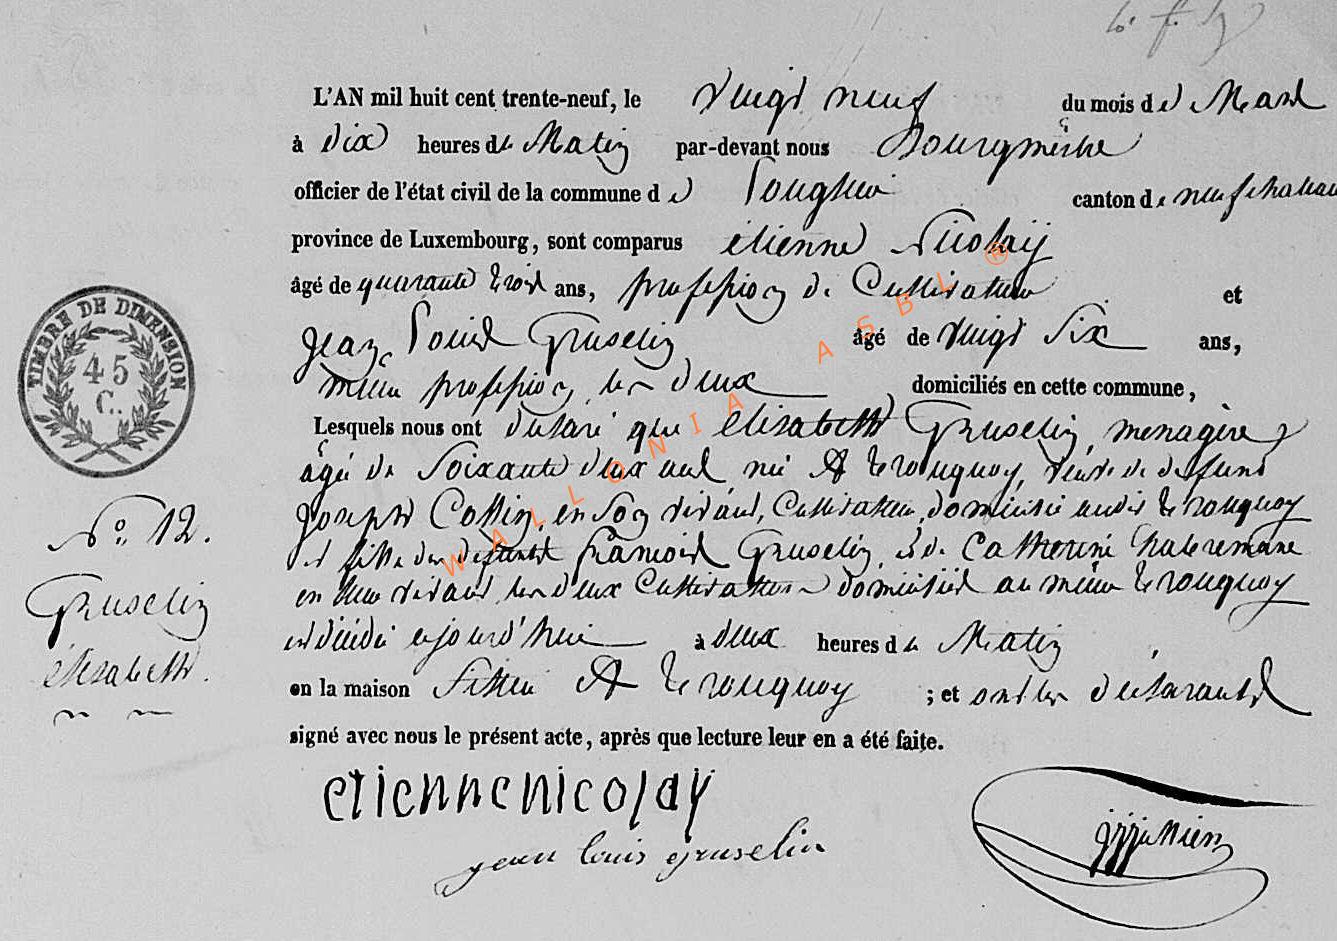 L'AN mil huit cent trente-neuf, le vingt neuf du mois de Mars
à dix heures du Matin par-devant nous Bourgmestre
officier de l'état civil de la commune de canton de neufchateau
province de Luxembourg, sont comparus etienne Nicolaÿ
âgé de quarante trois ans, profession de Cultivateur et
Jean Louis Gruselin âgé de vingt Six ans,
même profession, les deux domiciliés en cette commune,
Lesquels nous ont déclaré que elisabeth Gruselin, menagère
âgée de Soixante deux ans, née A tronquoy, veuve de deffunt
Joseph Collin, en son vivant, Cultivateur, domicilié audit tronquoy
et fille des defunts francois Gruselin, & de Catherine
en leur vivant les deux Cultivateurs domiciliés au même tronquoy
est décédée aujourd'hui à deux heures du Matin
en la maison A tronquoy ; et ont les déclarants
signé avec nous le présent acte, après que lecture leur en a été faite.
etienne nicolay
jean louis gruselin
TIMBRE DE DIMENSION
45
C.
N°. 12.
Gruselin
elisabeth.
WALLONIA ASBL ®